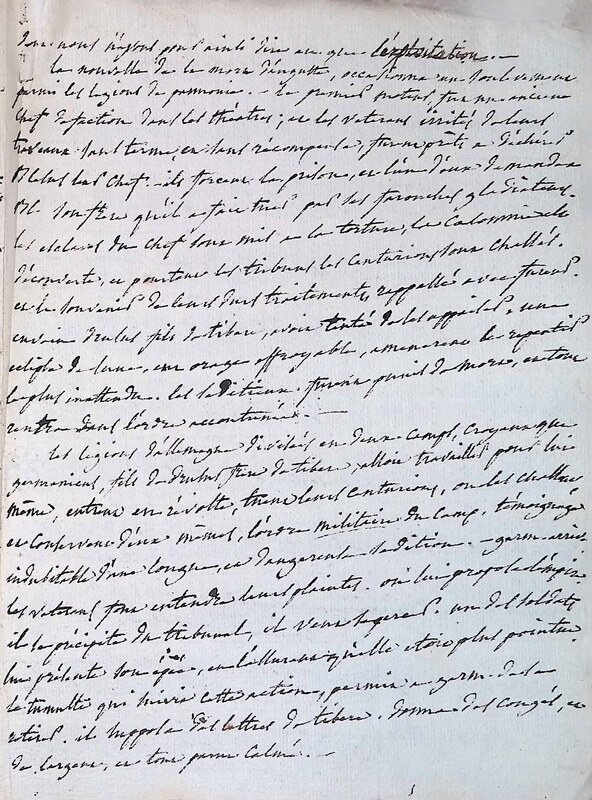 dont nous n'ayons pour ainsi dire eu que l'exploitation. —
la nouvelle de la mort d'auguste, occasionna un soulevement
parmi les legions de pannonie. — le premier moteur, fut un ancien
chef de faction dans les theatres; et les veterans irrités de leurs
travaux sans terme, et sans recompense, furent prêts a
chef. ils forcent la prison, et l'un d'eux demande a
Bl. son frère qu'il a fait tuer par ses farouches gladiateurs.
les esclaves du chef sont mis a la torture, la calomnie est
découverte, et pourtant les tribuns les centurions sont chassés.
et le souvenir de leurs durs traitements, rappellé avec fureur.
envain drusus fils de tibere, avoit tenté de les appaiser, une
eclipse de lune, un orage effroyable, amenerent le repentir
le plus inattendu. les séditieux furent punis de mort, et tout
rentra dans l'ordre accoutumé. —
les legions d'allemagne divisées en deux camps, croyant que
germanicus, fils de drusus frere de tibere, alloit travailler pour lui
même, entrent en révolte, tuent leurs centurions, ou les chassent
et conservent d'eux mêmes, l'ordre militaire du camp, témoignage
indubitable d'une longue, et dangereuse sédition. — germ. arrive
les veterans font entendre leurs plaintes. on lui propose l'empire
il se précipite du tribunal, il veut se percer. un des soldats
lui présente son épée, en l'assurant qu'elle etoit plus pointue.
le tumulte qui suivit cette action, permit a germ. de se
retirer. il supposa des lettres de tibere, donna des congés, et
de l'argent, et tout parut calmé. —